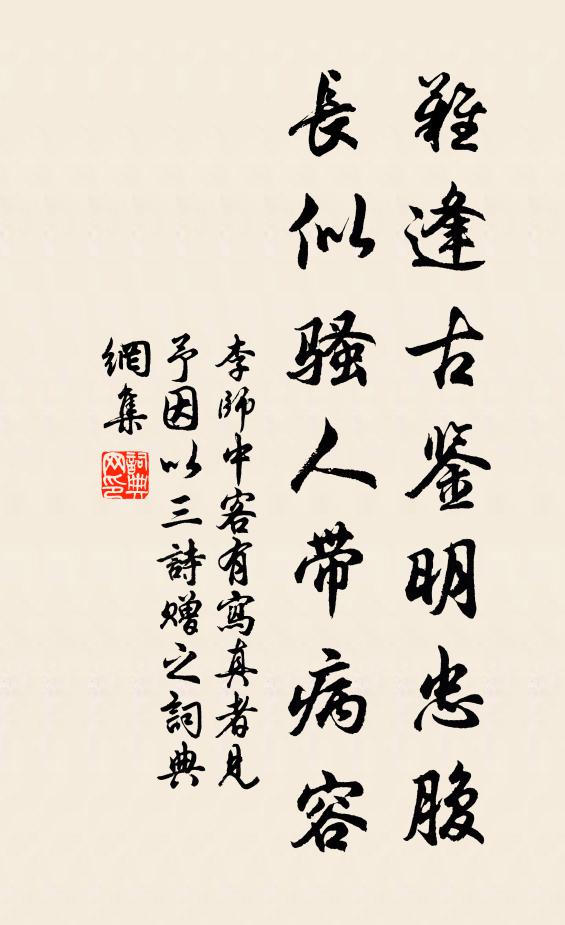 難逢古鉴明忠腹
長似骚人带病容
李師中客有寫真者見
予因以三詩赠之詞典
網集
詞典
网印